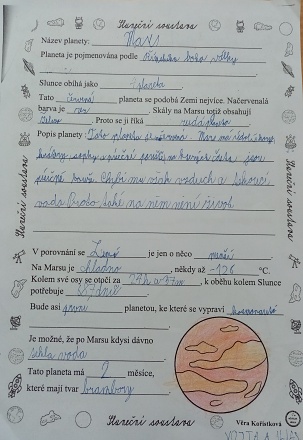 Sluneční soustava
Název planety: Mars
Planeta je pojmenována podle římského boha války
Slunce obíhá jako 4 planeta.
Tato červená planeta se podobá Zemi nejvíce. Načervenalá
barva je rez. Skály na Marsu totiž obsahují
železo. Proto se jí říká rudá planeta
Popis planety: Tato planeta je červená. Mars má údolí, kaňony,
krátery, sopky a
písečné bouře. Chybí mu vzduch a tekoucí
voda. Proto také na něm není život.
V porovnání se Zemí je jen o něco menší.
Na Marsu je chladno, někdy až -126 °C.
Kolem své osy se otočí za 24h a 37m, k oběhu kolem Slunce
potřebuje 687 dnů.
Bude asi první planetou, ke které se vypraví kosmonauti
Je možné, že po Marsu kdysi dávno
tekla voda.
Tato planeta má 2 měsíce,
které mají tvar brambory
Sluneční soustava
Věra Kořístková
Sluneční soustava
Sluneční soustava